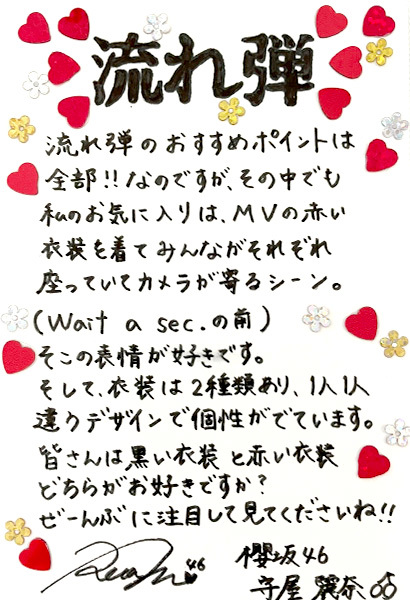 流れ弾
流れ弾のおすすめポイントは
全部!!なのですが、その中でも
私のお気に入りは、MVの赤い
衣装を着てみんながそれぞれ
座っていてカメラが寄るシーン。
(Wait a sec.の前)
そこの表情が好きです。
そして、衣装は2種類あり、1人1人
違うデザインで個性がでています。
皆さんは黒い衣装と赤い衣装
どちらがお好きですか?
ぜーんぶに注目して見てくださいね!!
46 櫻坂46
守屋麗奈